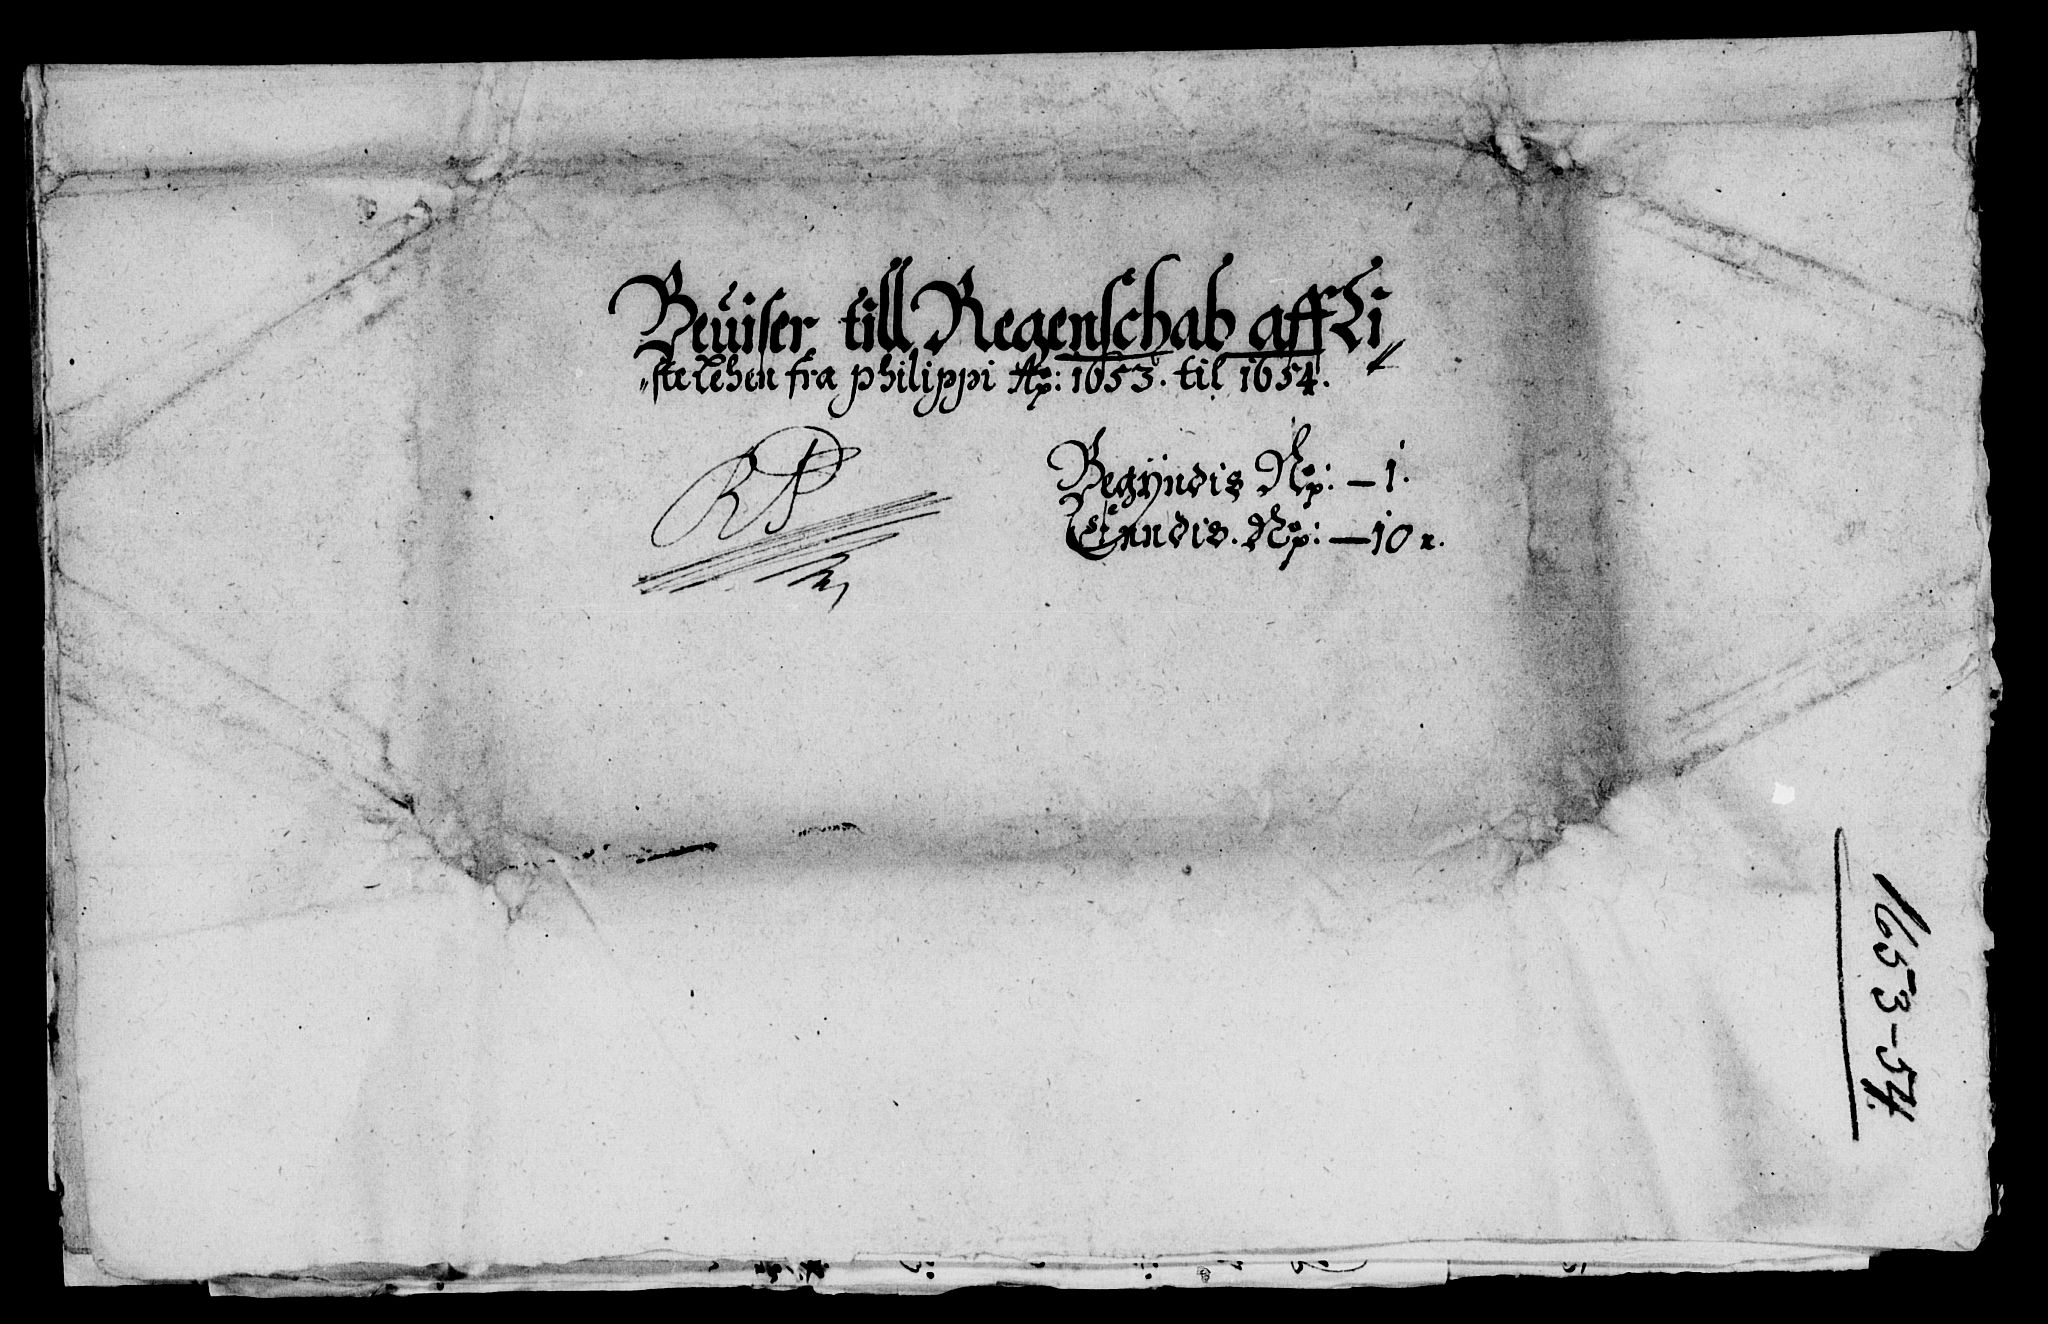 Beuiser till Regenschab aff Li
ste Lehen fra philippi Ap: 1653. til 1654.
RP
Begÿndis No: — 1.
Einndis. No: — 10
1653-54.